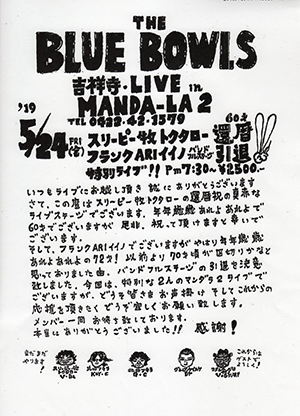 THE
BLUE BOWLS
吉祥寺・LIVE in
MANDA-LA 2
TEL 0422-42-1579
'19
5/24 FRI (金)
スリーピー牧 トクタロー 60才 還暦
フランクARIイイノ バンドフルステージ 引退
特別ライブ!! Pm7:30〜 ¥2500.-
いつもライブにお越し頂き 誠にありがとうございます
さて、この度は スリーピー牧トクタロー の還暦祝の真赤な
ライブステージでございます。年年歳歳 あれよあれよで
60才でございますが 是非、祝って頂けますと幸いで
ございます。
そして、フランクARIイイノでございますが やはり年年歳歳
あれよあれよの72才! 以前より70才頃が区切りかなと
思っておりました由。バンドフルステージの引退を決意
致しました。今回は、特別な2人のマンダラ2ライブで
ございますが、どうぞ皆さま お声掛け そしてこれからの
応援を頂きたく どうぞ宜しくお願い致します。
メンバー一同 お待ち致しております。
本当にありがとうございました!! 感謝!
まだまだ
やります!
これからは
ゲストで
よろしく!